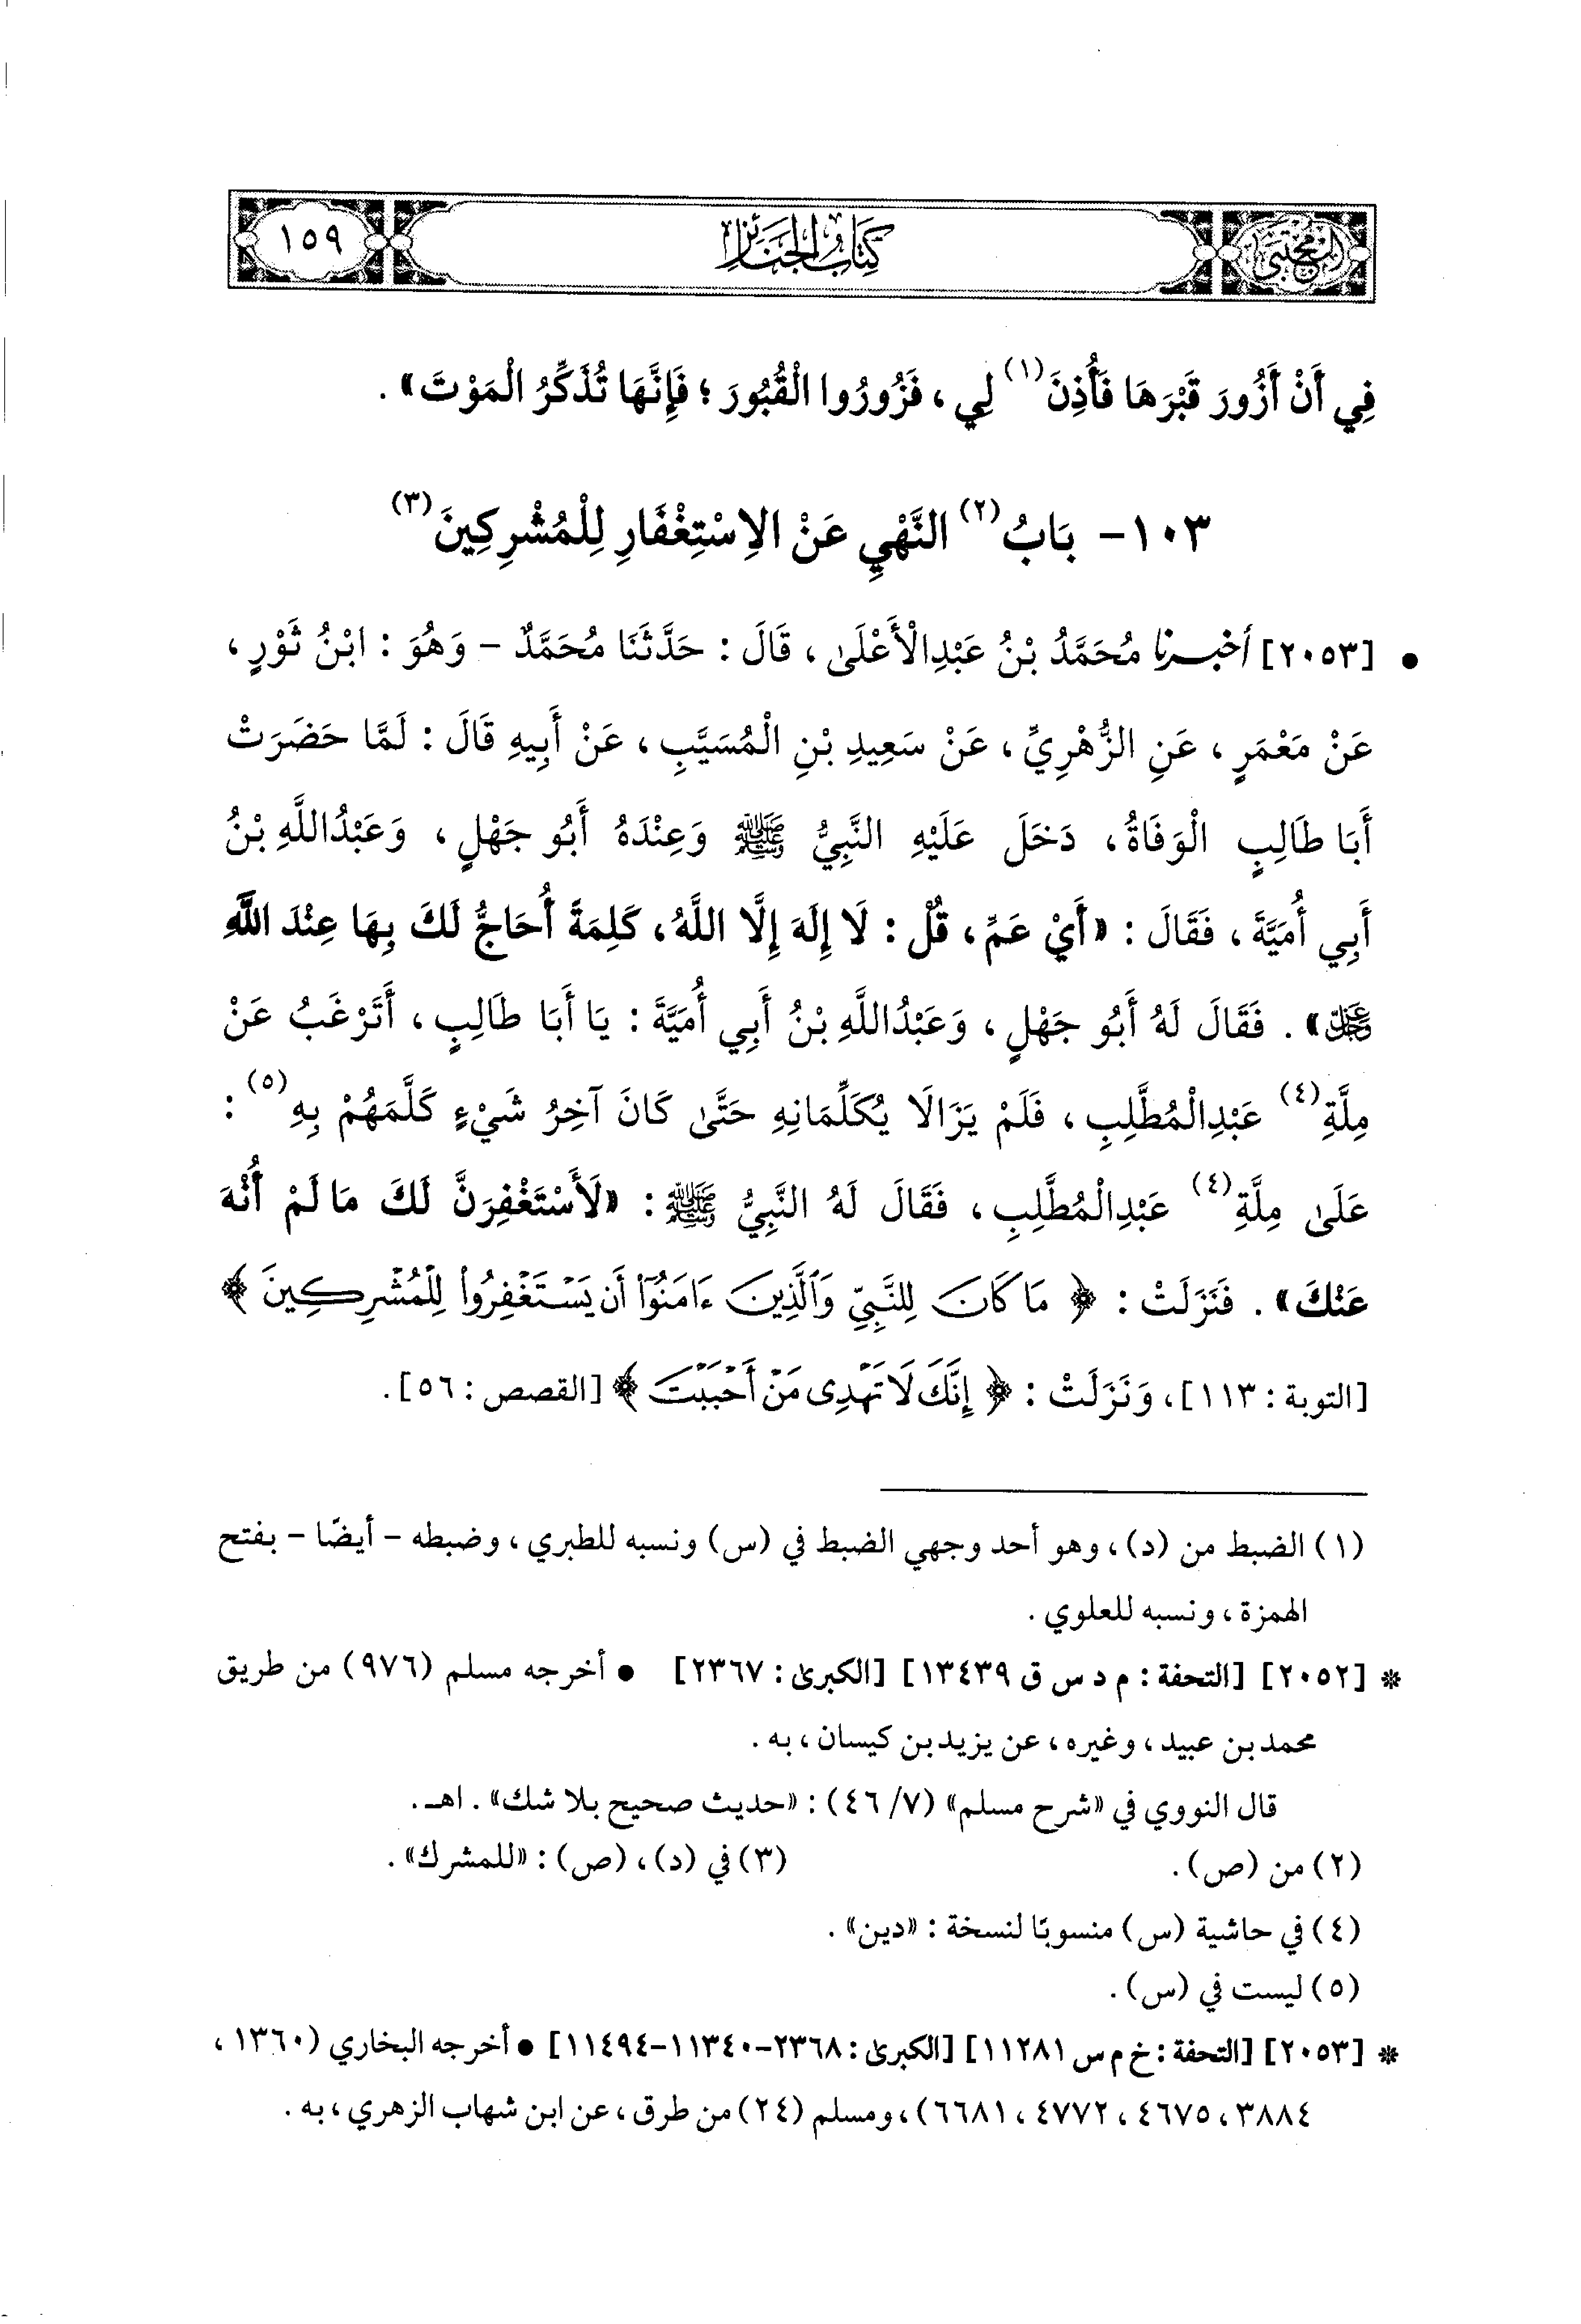 المجتبى
كتاب الجنائز
١٥٩
فِي أَنْ أَزُورَ قَبْرَهَا فَأُذِنَ(١) لِي ، فَزُورُوا الْقُبُورَ ؛ فَإِنَّهَا تُذَكِّرُ الْمَوْتَ» .
١٠٣- بَابُ(٢) النَّهْيِ عَنْ الِاسْتِغْفَارِ لِلْمُشْرِكِينَ(٣)
• [٢٠٥٣] أخبرنا مُحَمَّدُ بْنُ عَبْدِالْأَعْلَىٰ ، قَالَ : حَدَّثَنَا مُحَمَّدٌ - وَهُوَ : ابْنُ ثَوْرٍ ،
عَنْ مَعْمَرٍ ، عَنِ الزُّهْرِيِّ ، عَنْ سَعِيدِ بْنِ الْمُسَيَّبِ ، عَنْ أَبِيهِ قَالَ : لَمَّا حَضَرَتْ
أَبَا طَالِبٍ الْوَفَاةُ ، دَخَلَ عَلَيْهِ النَّبِيُّ ﷺ وَعِنْدَهُ أَبُو جَهْلٍ ، وَعَبْدُاللَّهِ بْنُ
أَبِي أُمَيَّةَ ، فَقَالَ : «أَيْ عَمِّ ، قُلْ : لَا إِلَهَ إِلَّا اللَّهُ ، كَلِمَةً أُحَاجُّ لَكَ بِهَا عِنْدَ اللَّهِ
عَزَّ وَجَلَّ» . فَقَالَ لَهُ أَبُو جَهْلٍ ، وَعَبْدُاللَّهِ بْنُ أَبِي أُمَيَّةَ : يَا أَبَا طَالِبٍ ، أَتَرْغَبُ عَنْ
مِلَّةِ(٤) عَبْدِالْمُطَّلِبِ ، فَلَمْ يَزَالَا يُكَلِّمَانِهِ حَتَّىٰ كَانَ آخِرُ شَيْءٍ كَلَّمَهُمْ بِهِ(٥) :
عَلَىٰ مِلَّةِ(٤) عَبْدِالْمُطَّلِبِ ، فَقَالَ لَهُ النَّبِيُّ ﷺ : «لَأَسْتَغْفِرَنَّ لَكَ مَا لَمْ أُنْهَ
عَنْكَ» . فَنَزَلَتْ : ﴿ مَا كَانَ لِلنَّبِيِّ وَٱلَّذِينَ ءَامَنُوٓا۟ أَن يَسْتَغْفِرُوا۟ لِلْمُشْرِكِينَ ﴾
[التوبة : ١١٣] ، وَنَزَلَتْ : ﴿ إِنَّكَ لَا تَهْدِى مَنْ أَحْبَبْتَ ﴾ [القصص : ٥٦] .
(١) الضبط من (د) ، وهو أحد وجهي الضبط في (س) ونسبه للطبري ، وضبطه - أيضًا - بفتح
الهمزة ، ونسبه للعلوي .
* [٢٠٥٢] [التحفة : م د س ق ١٣٤٣٩] [الكبرىٰ : ٢٣٦٧] • أخرجه مسلم (٩٧٦) من طريق
محمد بن عبيد ، وغيره ، عن يزيد بن كيسان ، به .
قال النووي في «شرح مسلم» (٧/ ٤٦) : «حديث صحيح بلا شك» . اهـ .
(٢) من (ص) . (٣) في (د) ، (ص) : «للمشرك» .
(٤) في حاشية (س) منسوبًا لنسخة : «دين» .
(٥) ليست في (س) .
* [٢٠٥٣] [التحفة : خ م س ١١٢٨١] [الكبرىٰ : ٢٣٦٨-١١٣٤٠-١١٤٩٤] • أخرجه البخاري (١٣٦٠ ،
٣٨٨٤ ، ٤٦٧٥ ، ٤٧٧٢ ، ٦٦٨١) ، ومسلم (٢٤) من طرق ، عن ابن شهاب الزهري ، به .